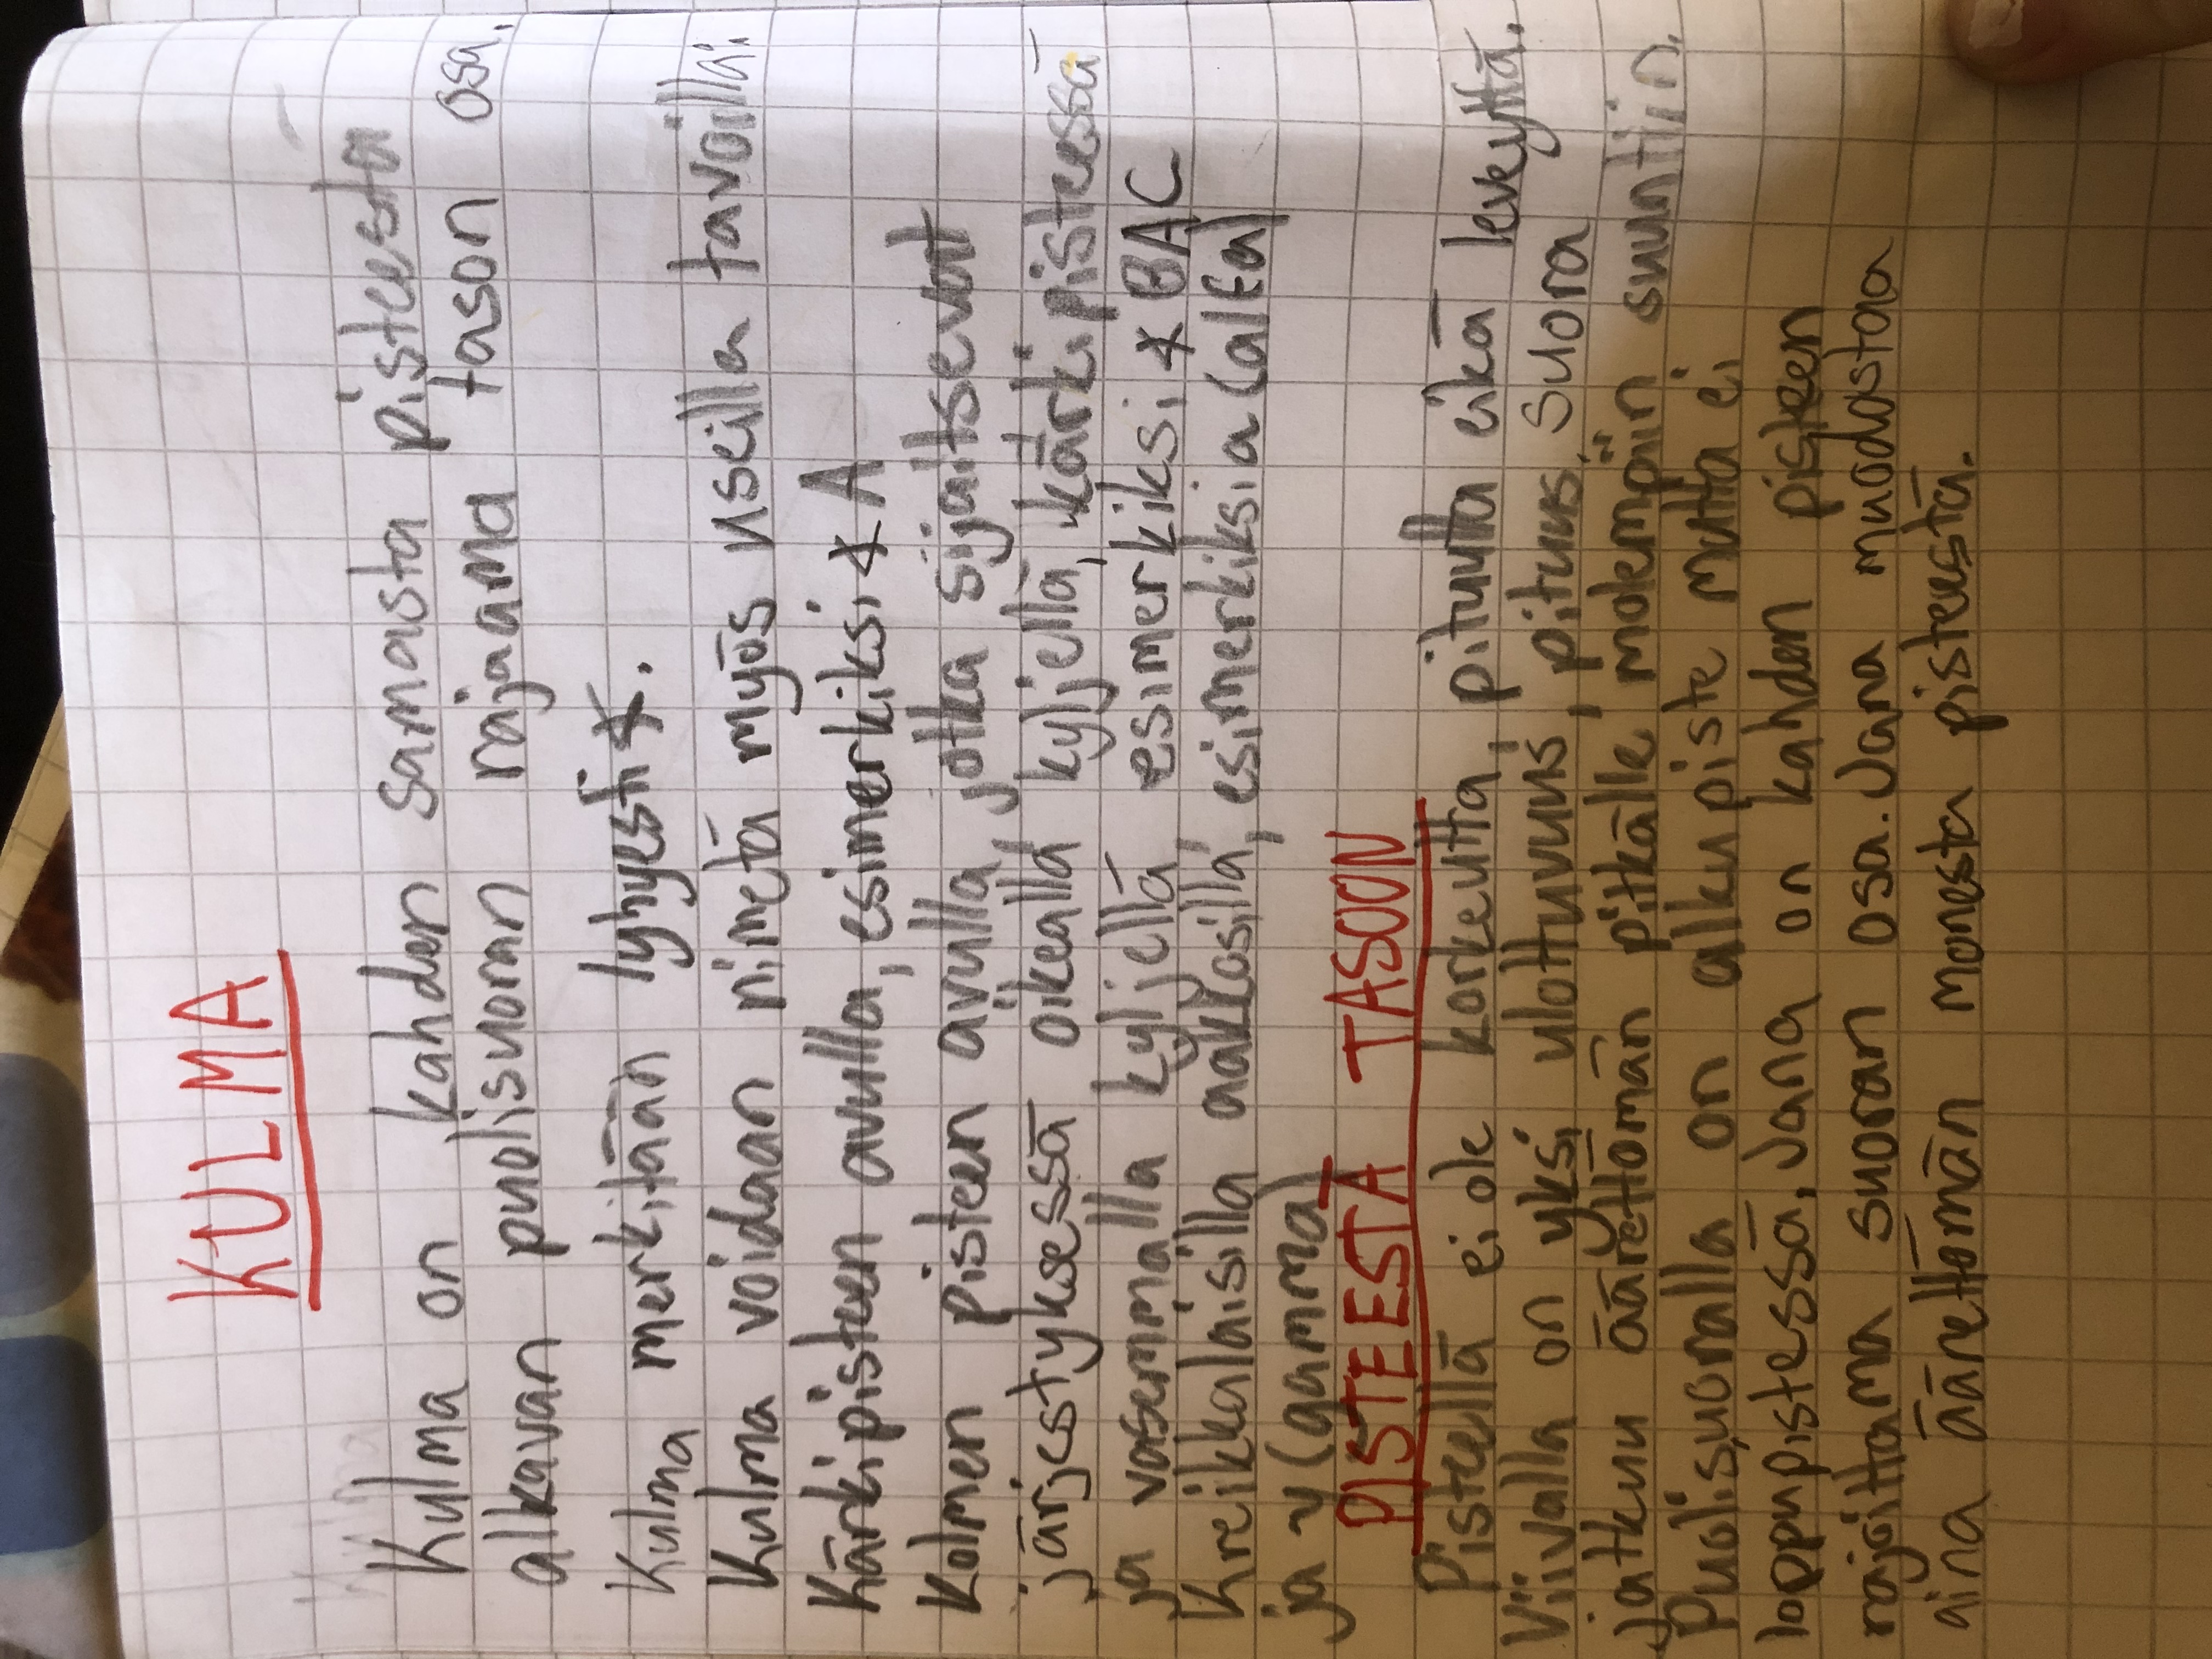 KULMA
Kulma on kahden samasta pisteestä
alkavan puolisuoran rajaama tason osa.
Kulma merkitään lyhyesti ∢.
Kulma voidaan nimetä myös useilla tavoilla:
Kärkipisteen avulla, esimerkiksi ∢ A
Kolmen pisteen avulla, jotka sijaitsevat
järjestyksessä oikealla kyljellä, kärkipisteessä
ja vasemmalla kyljellä esimerkiksi ∢ BAC
Kreikkalaisilla aakkosilla, esimerkiksi a (alfa)
ja γ (gamma)
PISTEESTÄ TASOON
Pisteellä ei ole korkeutta, pituutta eikä leveyttä.
Viivalla on yksi ulottuvuus, pituus. Suora
jatkuu äärettömän pitkälle molempiin suuntiin.
Puolisuoralla on alkupiste mutta ei
loppupistessä. Jana on kahden pisteen
rajoittama suoran osa. Jana muodostaa
aina äärettömän monesta pisteestä.